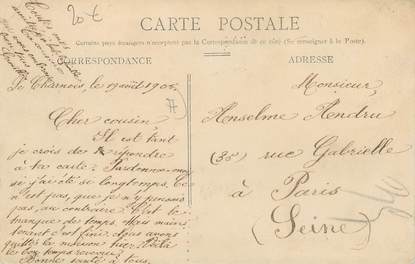 20€
CARTE POSTALE
Certains pays étrangers n'acceptent pas la Correspondance de ce côté (Se renseigner à la Poste).
CORRESPONDANCE
ADRESSE
le 19 août 1905
Cher cousin
Il est tant
je crois de répondre
à ta carte. Pardonne-moi
si j'ai été si longtemps. Ce
n'est pas, que je n'y pensais
pas, au contraire. C'est le
manque de temps. Mais mainte
nant c'est fini. nous avons
quitté la maison hier. Voilà
le bon temps revenu.
Bonne santé à tous.
Monsieur
Anselme Andru
(35) rue Gabrielle
à Paris
(Seine)